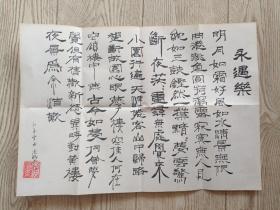 永遇樂
明月如霜好風如水清景無限
曲港跳魚圓荷瀉露寂寞無人見
紞如三鼓鏗然一葉黯黯夢雲驚
斷夜茫茫重尋無處覺來
小園行遍天涯倦客山中歸路
望斷故園心眼燕子樓空佳人何在
空鎖樓中燕古今如夢何曾夢
覺但有舊歡新怨異時對黃樓
夜景為余浩歎